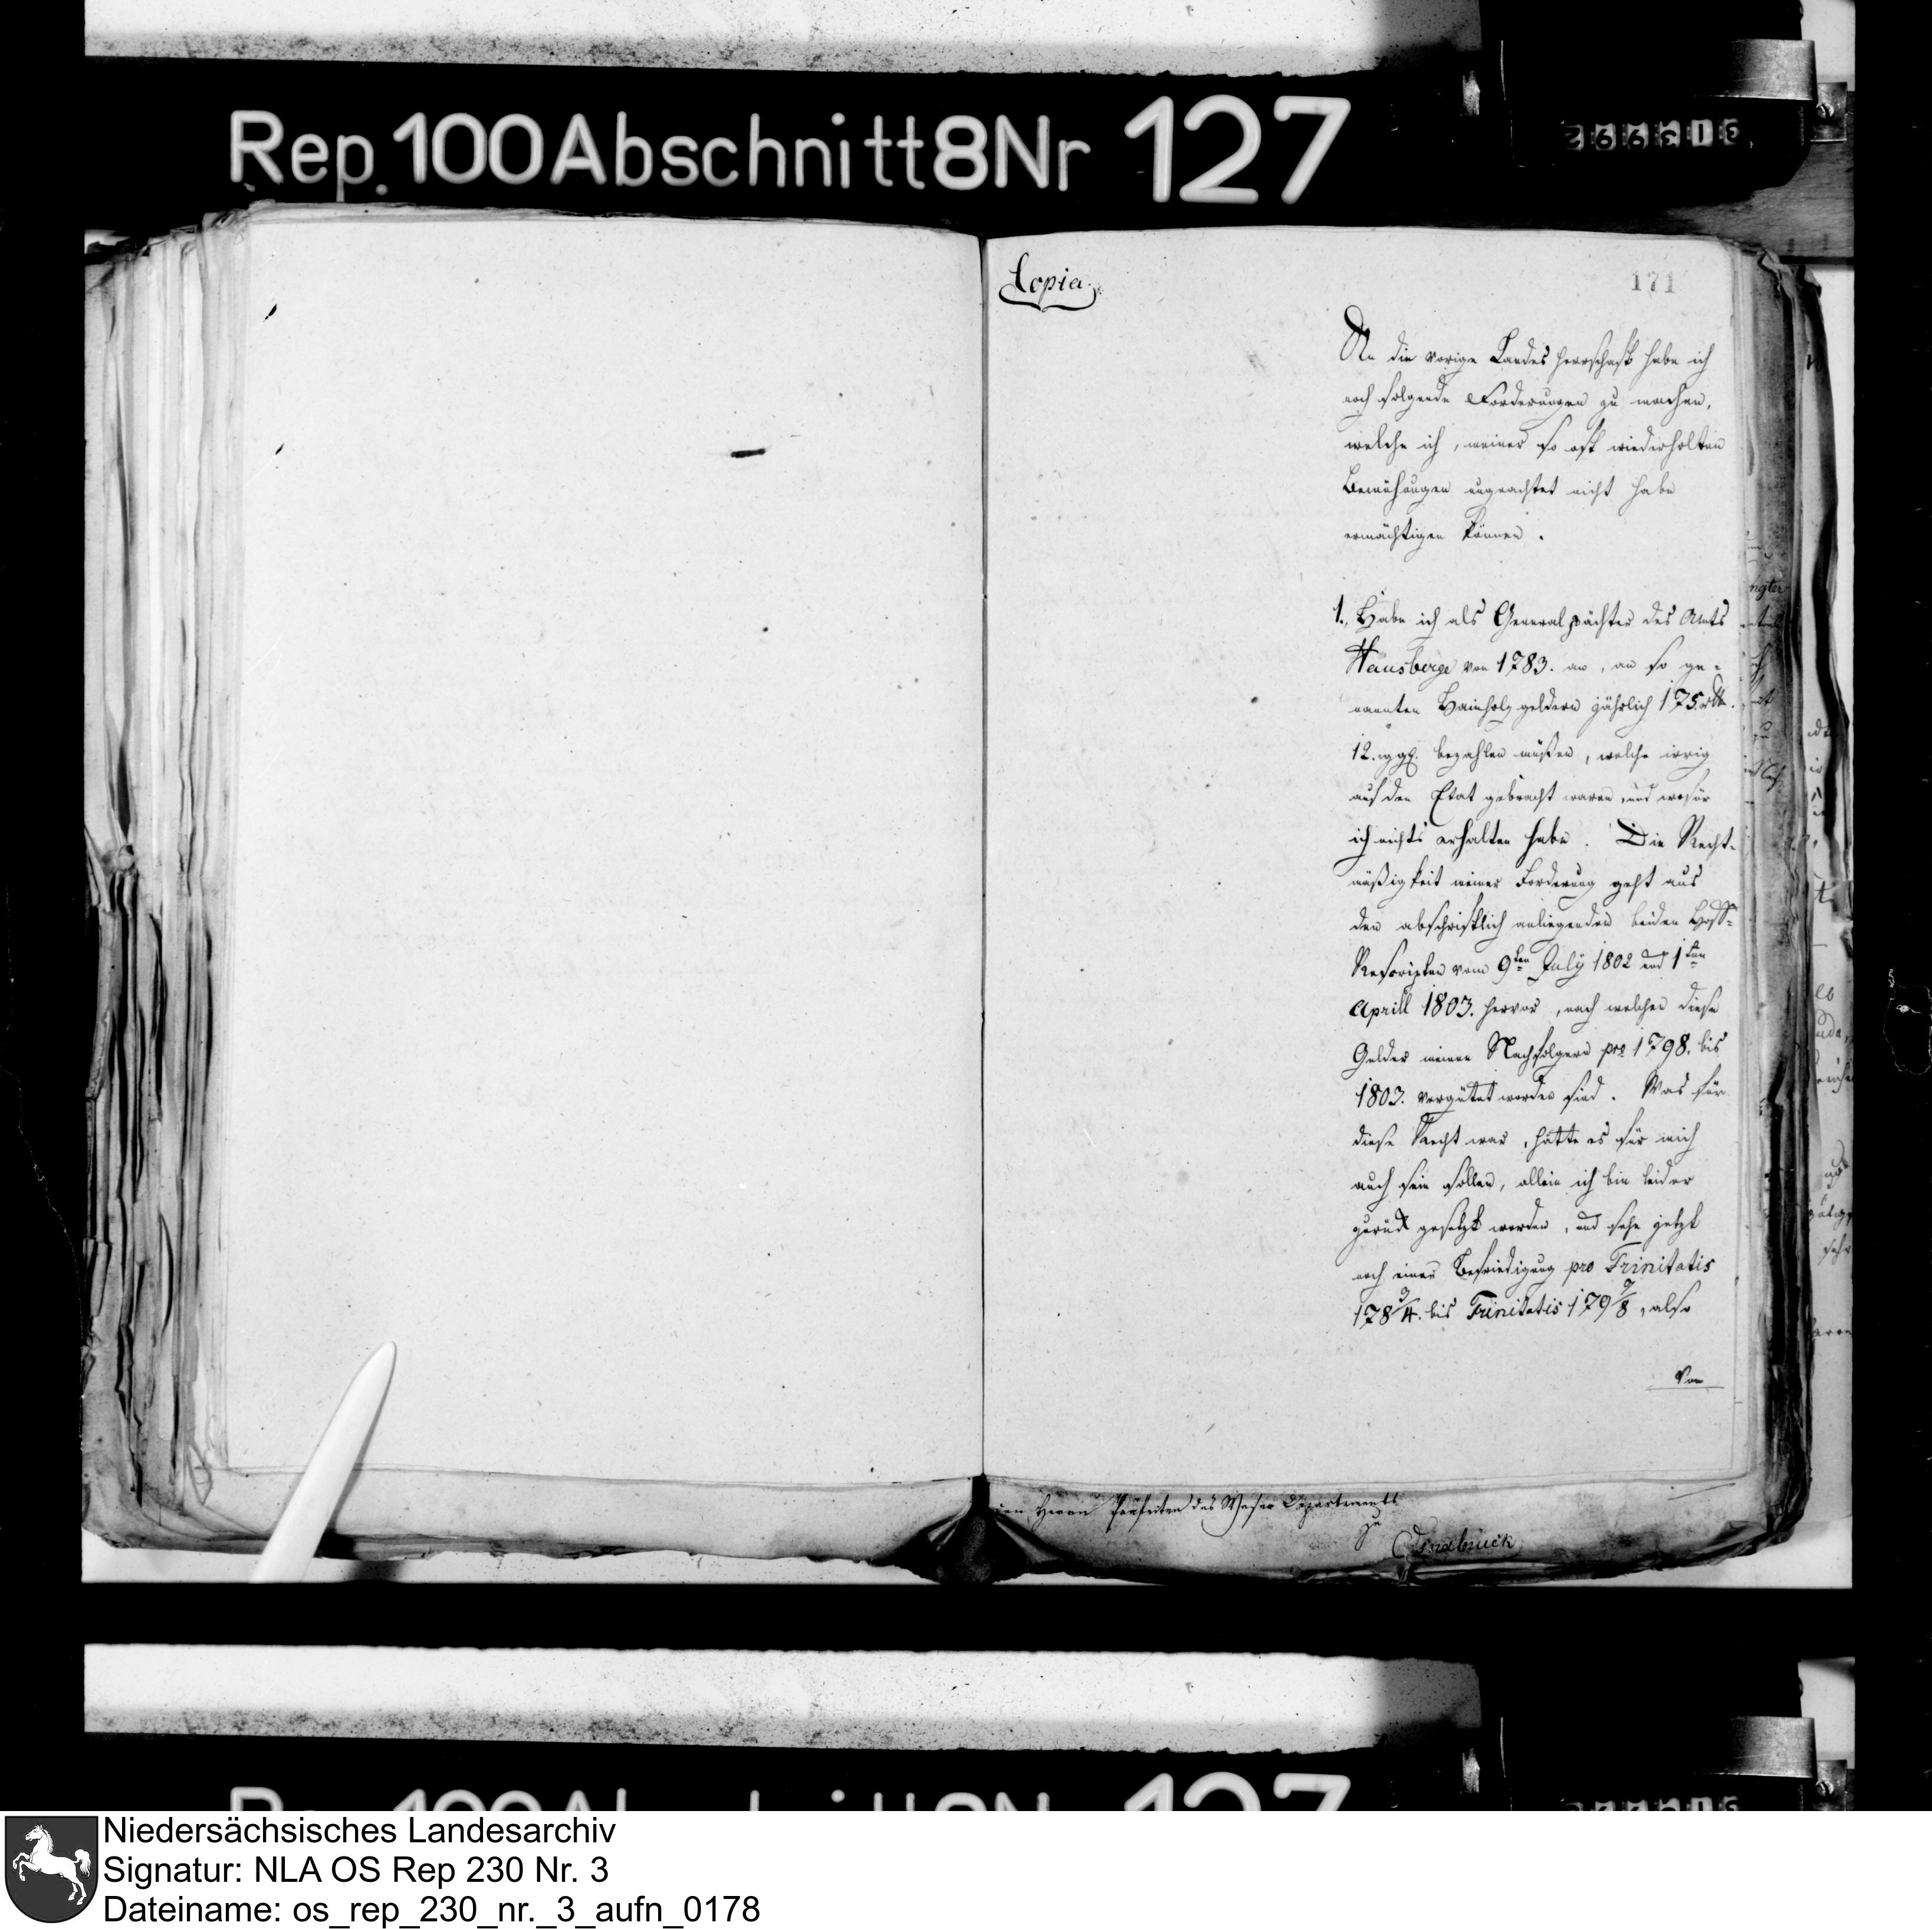 Rep. 100 Abschnitt 8 Nr 127
Copia.
171
An die vorige Landesherrschaft habe ich
noch folgende Forderungen zu machen,
welche ich, meiner so oft wiederholten
Bemühungen ungeachtet nicht habe
ermächtigen können.
1., Habe ich als Generalpächter des Amts
Hausberge von 1783. an, an so ge-
nannten Hainholzgeldern jährlich 175. rthlr.
12. ggr. bezahlen müßen, welche irrig
auf den Etat gebracht waren, und wofür
ich nichts erhalten habe. Die Recht-
mäßigkeit meiner Forderung geht aus
den abschriftlich anliegenden beiden Hoff-
Rescripten vom 9ten July 1802 und 1ten
Aprill 1803. hervor, nach welchen diese
Gelder meinen Nachfolgern pro 1798. bis
1803. vergütet worden sind. Was für
diese Recht war, hätte es für mich
auch sein sollen, allein ich bin leider
zurück gesetzt worden, und sehe jetzt
noch einer Befriedigung pro Trinitatis
178¾. bis Trinitatis 179⅞, also
von
den Herrn Präfecten des Weser Departements
zu
Osnabrück
Niedersächsisches Landesarchiv
Signatur: NLA OS Rep 230 Nr. 3
Dateiname: os_rep_230_nr._3_aufn_0178